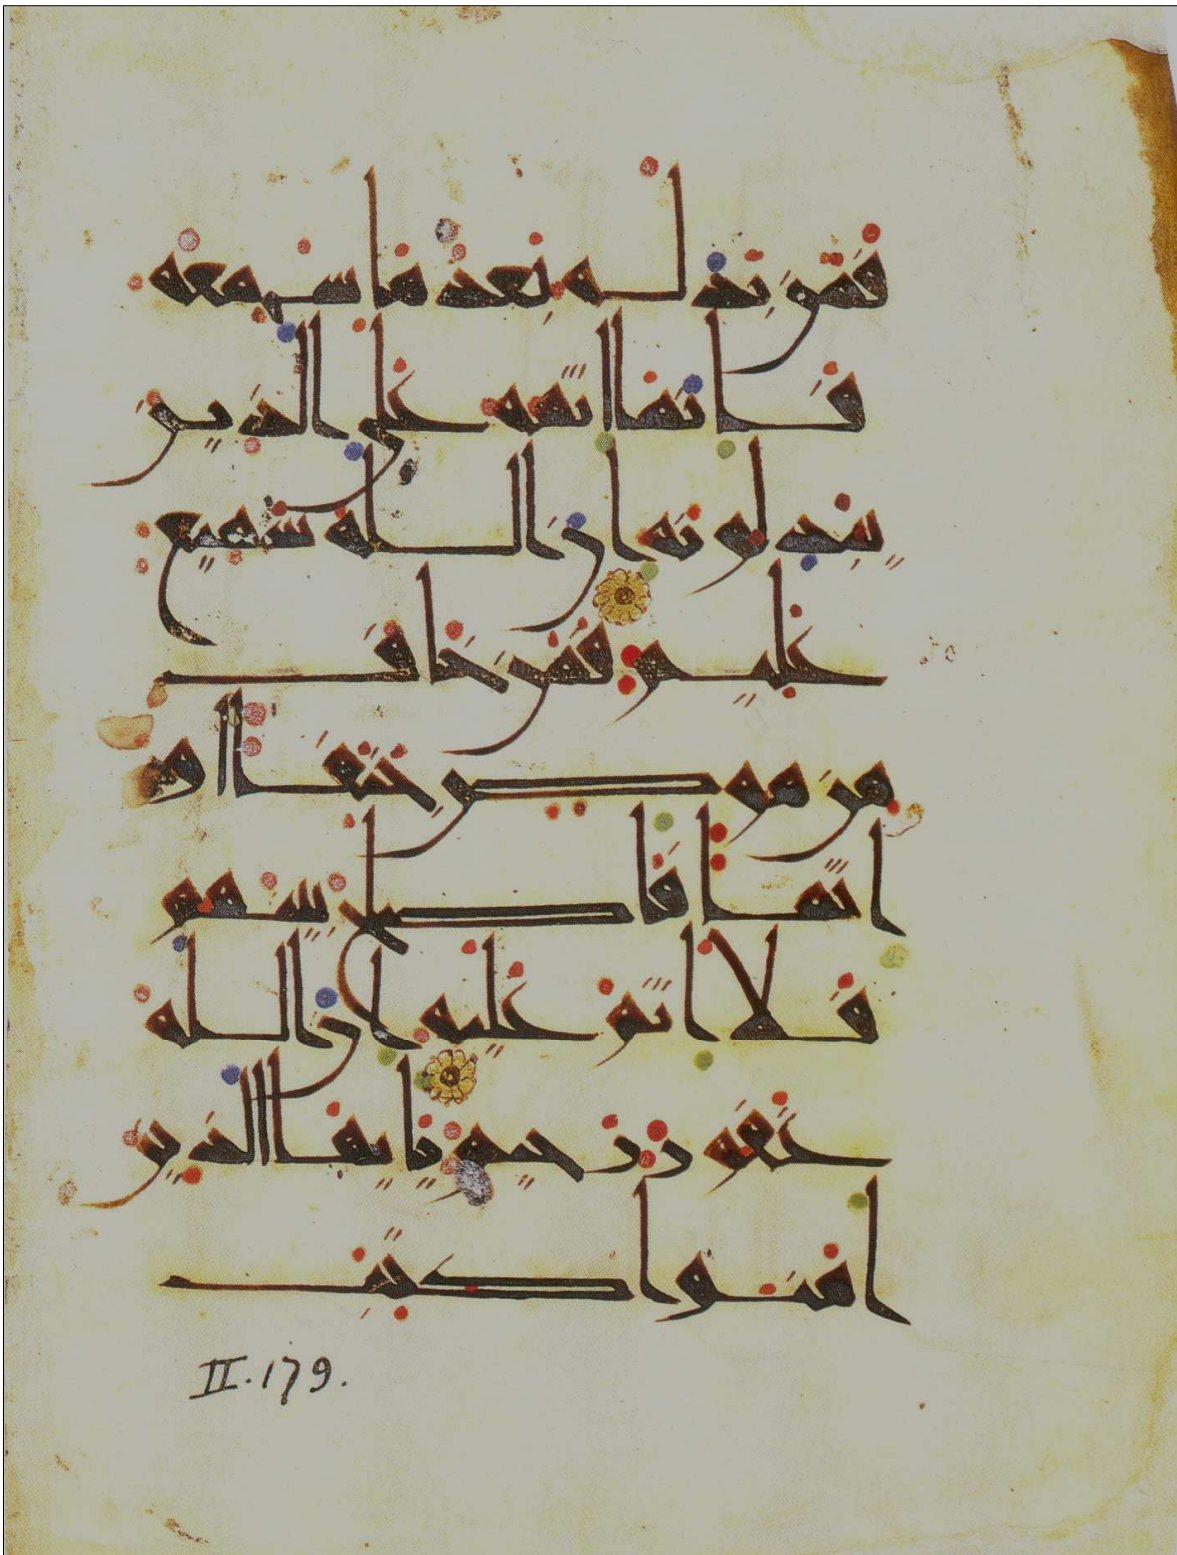 فمن بدله بعد ما سمعه
فانما اثمه على الذين
يبدلونه ان الله سميع
عليم فمن خاف
من موص جنفا او
اثما فاصلح بينهم
فلا اثم عليه ان الله
غفور رحيم يايها الذين
امنوا كتب
II.179.